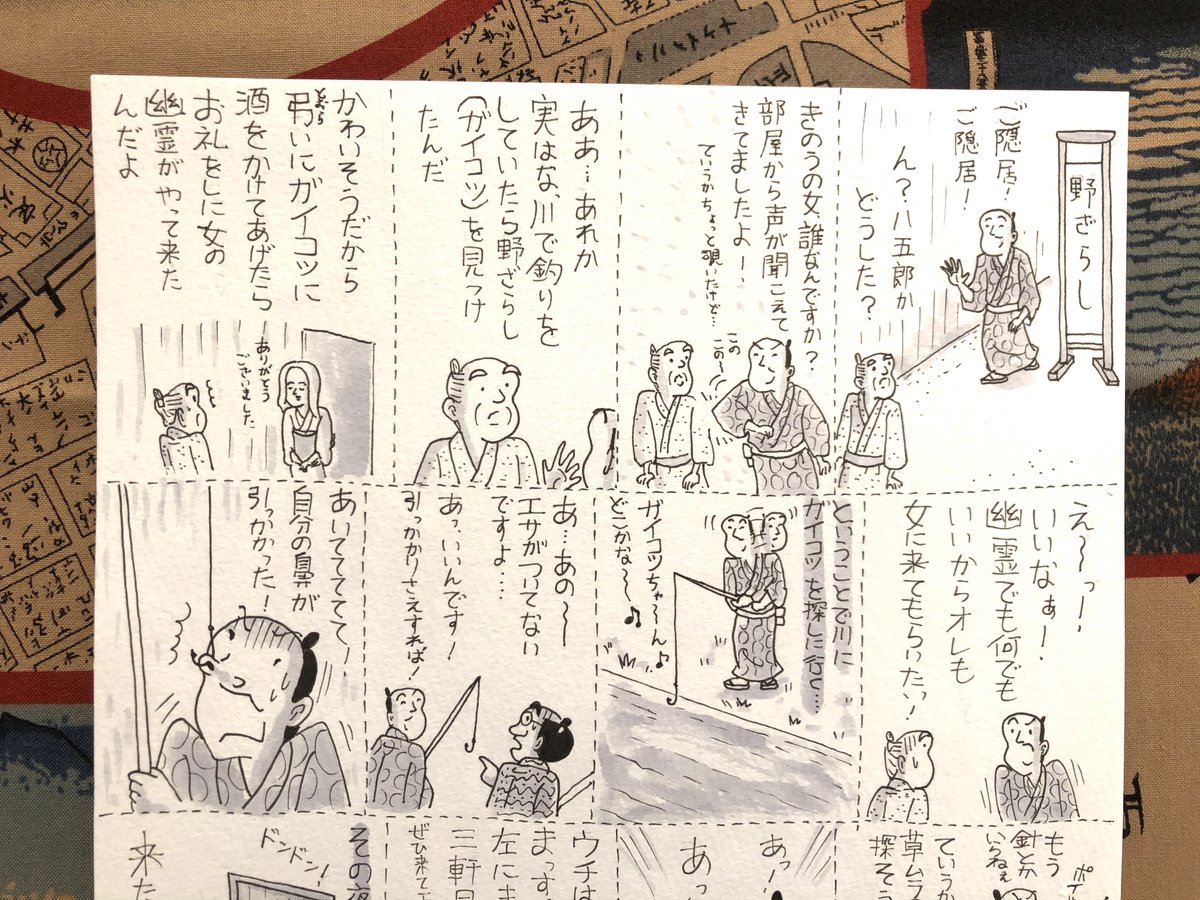 野ざらし
ご隠居!
ご隠居!
ん?八五郎か
どうした?
きのうの女、誰なんですか?
部屋から声が聞こえて
きてましたよー、
ていうかちょっと覗いたけど…
この
この〜
ああ…あれか
実はな、川で釣りを
していたら野ざらし
(ガイコツ)を見つけ
たんだ
かわいそうだから
弔いにガイコツに
とむら
酒をかけてあげたら
お礼をしに女の
幽霊がやって来た
んだよ
ありがとう
ございました
え〜っ!
いいなぁー!
幽霊でも何でも
いいからオレも
女に来てもらいたいっ!
ということで川に
ガイコツを探しに行く…
ガイコツちゃ〜ん♪
どこかな〜♪
あ…あの〜
エサがついてない
ですよ…
あっ、いいんです!
引っかかりさえすれば!
あいててててて、
自分の鼻が
引っかかった!
もう
針とか
いらねぇ
ポイ
ていうか
草ムラ
探そう
あっ!
あっ
ウチは
まっす
左にま
三軒目
ぜひ来て
その夜
ドンドン!
来た